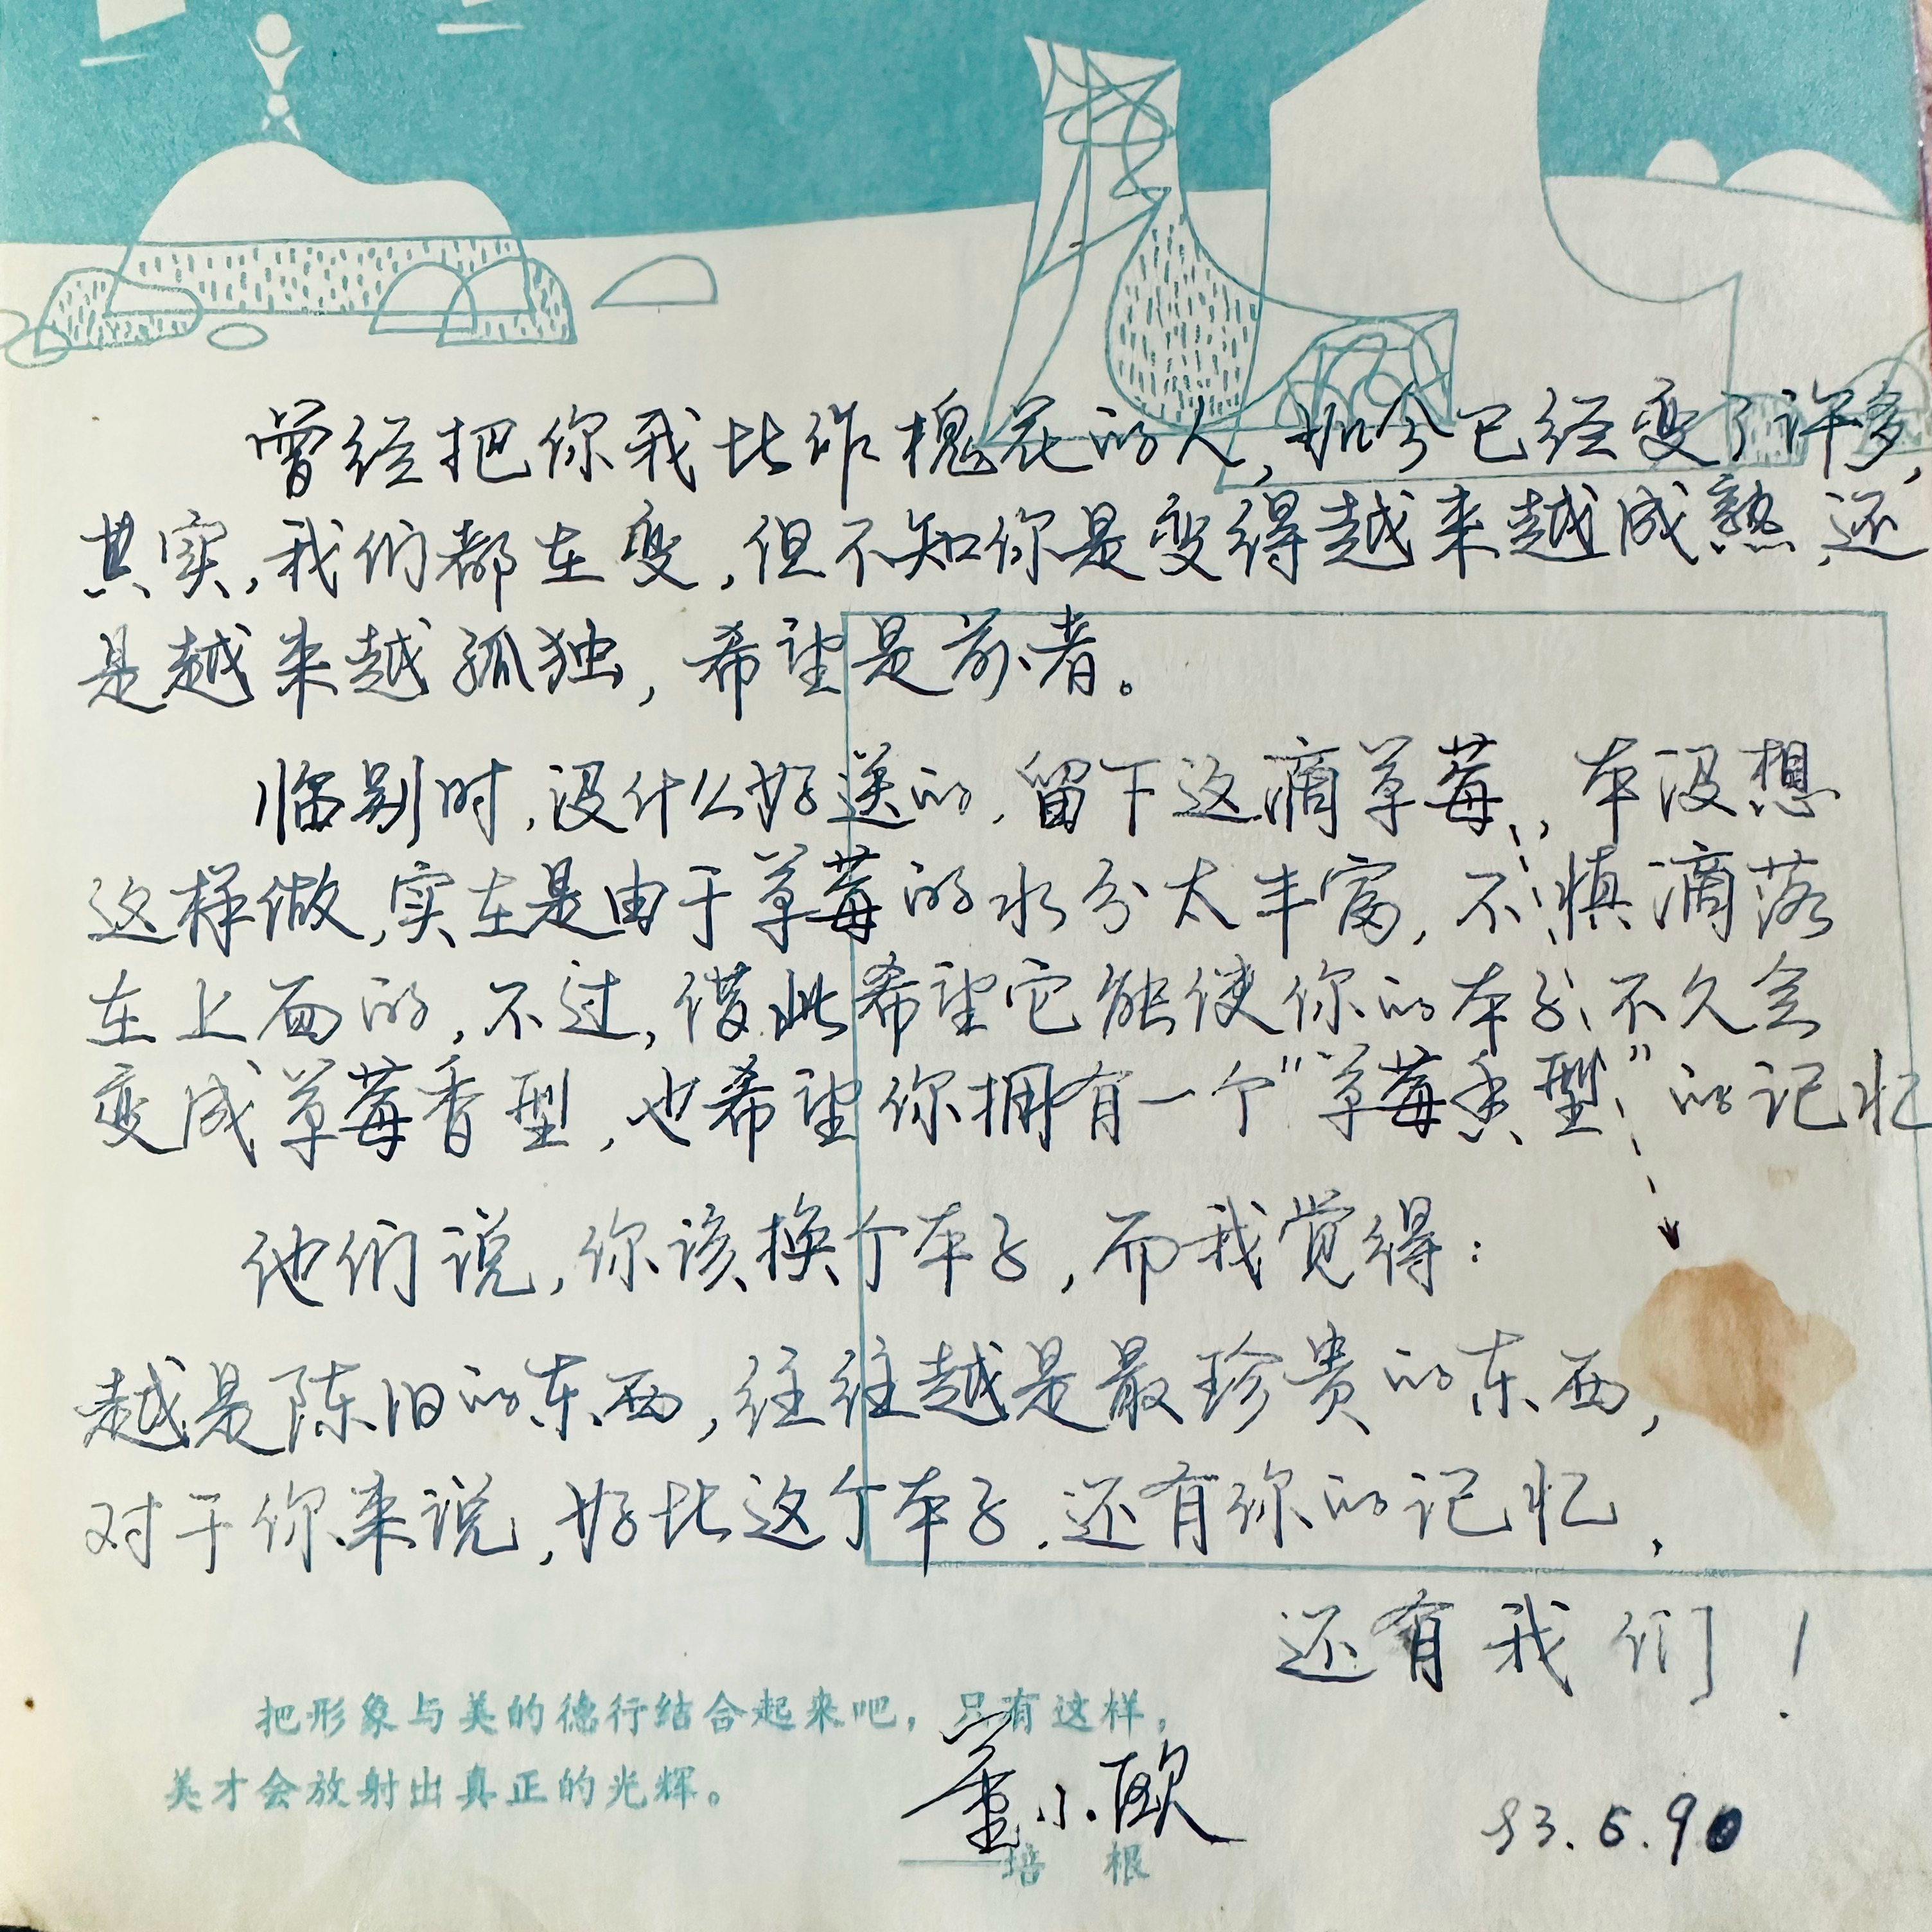 曾经把你我比作槐花的人，如今已经变了许多，
其实，我们都在变，但不知你是变得越来越成熟，还
是越来越孤独，希望是前者。
临别时，没什么好送的，留下这滴草莓，本没想
这样做，实在是由于草莓的水分太丰富，不慎滴落
在上面的，不过，借此希望它能使你的本子不久会
变成草莓香型，也希望你拥有一个“草莓香型”的记忆
他们说，你该换个本子，而我觉得：
越是陈旧的东西，往往越是最珍贵的东西，
对于你来说，好比这个本子，还有你的记忆，
还有我们！
把形象与美的德行结合起来吧，只有这样，
美才会放射出真正的光辉。
董小欧
——培根
93.6.9